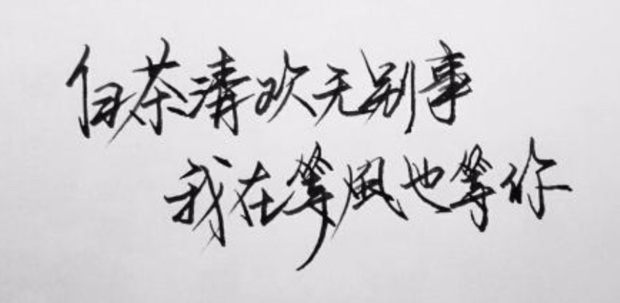 白茶清欢无别事
我在等風也等你